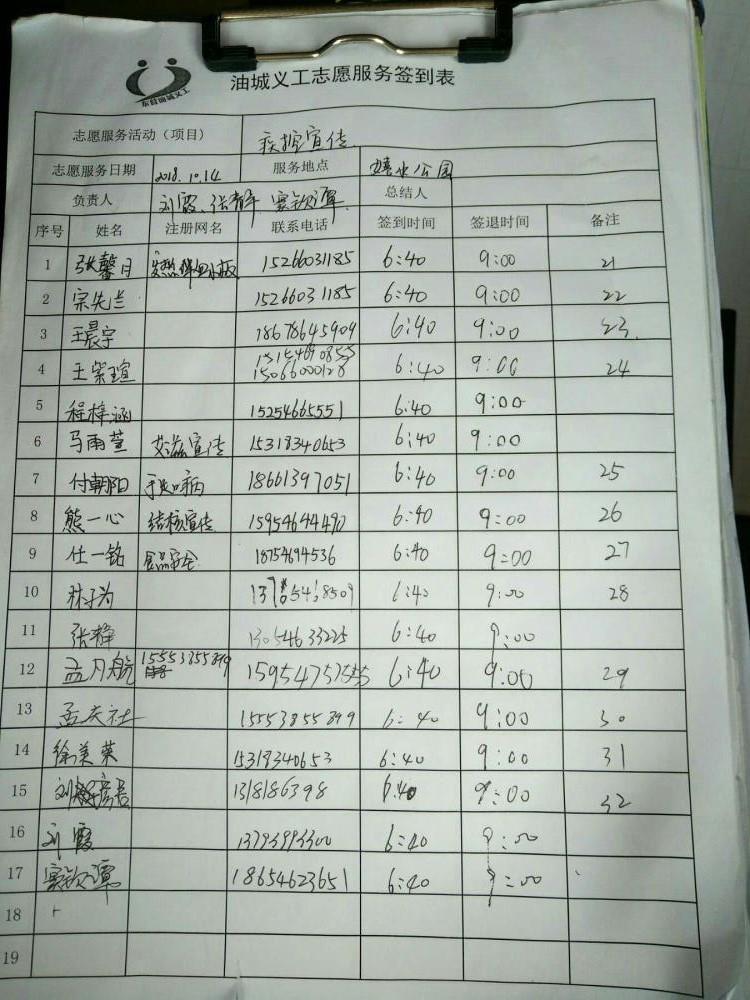 东营油城义工
油城义工志愿服务签到表
志愿服务活动（项目） 疾控宣传
志愿服务日期 2018.10.14 服务地点 公园
负责人 刘霞、张静 总结人
序号 姓名 注册网名 联系电话 签到时间 签退时间 备注
1 张馨月 15266031185 6:40 9:00 21
2 宗先兰 15266031185 6:40 9:00 22
3 王晨宇 18678645909 6:40 9:00 23
4 王紫瑄 15066000128 6:40 9:00 24
5 程梓涵 15254665551 6:40 9:00
6 马雨萱 艾滋宣传 15318340653 6:40 9:00
7 付朝阳 手足口病 18661397051 6:40 9:00 25
8 熊一心 结核宣传 15954644490 6:40 9:00 26
9 仕一铭 食品安全 18754694536 6:40 9:00 27
10 林子为 6:40 9:00 28
11 张静 13054633225 6:40 9:00
12 孟月航 15553855899 6:40 9:00 29
13 孟庆社 15553855899 6:40 9:00 30
14 徐美荣 15318340653 6:40 9:00 31
15 刘 1318186398 6:40 9:00 32
16 刘霞 6:40 9:00
17 18654623651 6:40 9:00
18
19